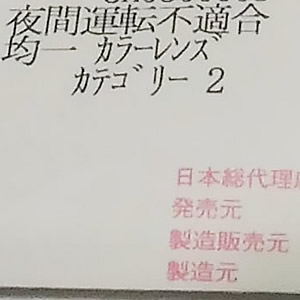 夜間運転不適合
均一 ｶﾗｰﾚﾝｽﾞ
ｶﾃｺﾞﾘｰ 2
日本総代理
発売元
製造販売元
製造元